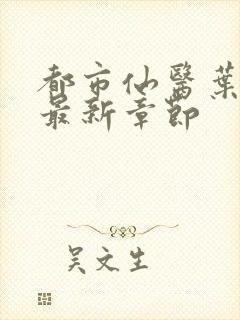 都市仙醫葉
最新章節
吴文生